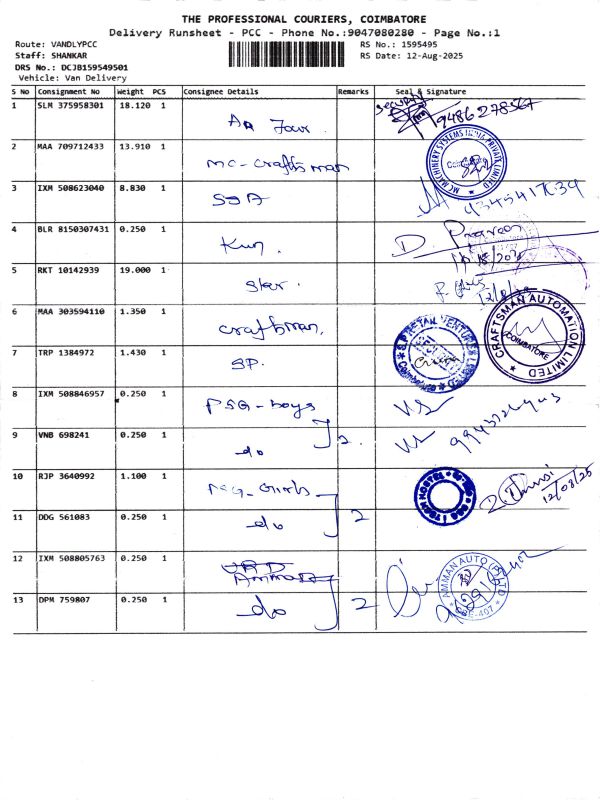 THE PROFESSIONAL COURIERS, COIMBATORE
Delivery Runsheet - PCC - Phone No.:9047080280 - Page No.:1
Route: VANDLYPCC RS No.: 1595495
Staff: SHANKAR RS Date: 12-Aug-2025
DRS No.: DCJB159549501
Vehicle: Van Delivery
S No Consignment No Weight PCS Consignee Details Remarks Seal & Signature
1 SLM 375958301 18.120 1 security
2 MAA 709712433 13.910 1 mc-craftsman MC MACHINERY SYSTEMS INDIA PRIVATE LIMITED
3 IXM 508623040 8.830 1
4 BLR 8150307431 0.250 1 D. Praveen
5 RKT 10142939 19.000 1 star.
6 MAA 303594110 1.350 1 craftsman, CRAFTSMAN AUTOMATION LIMITED COIMBATORE
7 TRP 1384972 1.430 1 SP. Coimbatore
8 IXM 508846957 0.250 1 PSG-boys
9 VNB 698241 0.250 1 do 2.
10 RJP 3640992 1.100 1 PSG-Girls 12/08/25
11 DDG 561083 0.250 1 do 2
12 IXM 508805763 0.250 1 AMMAN AUTO (P) LTD CBE-407
13 DPM 759807 0.250 1 do 2